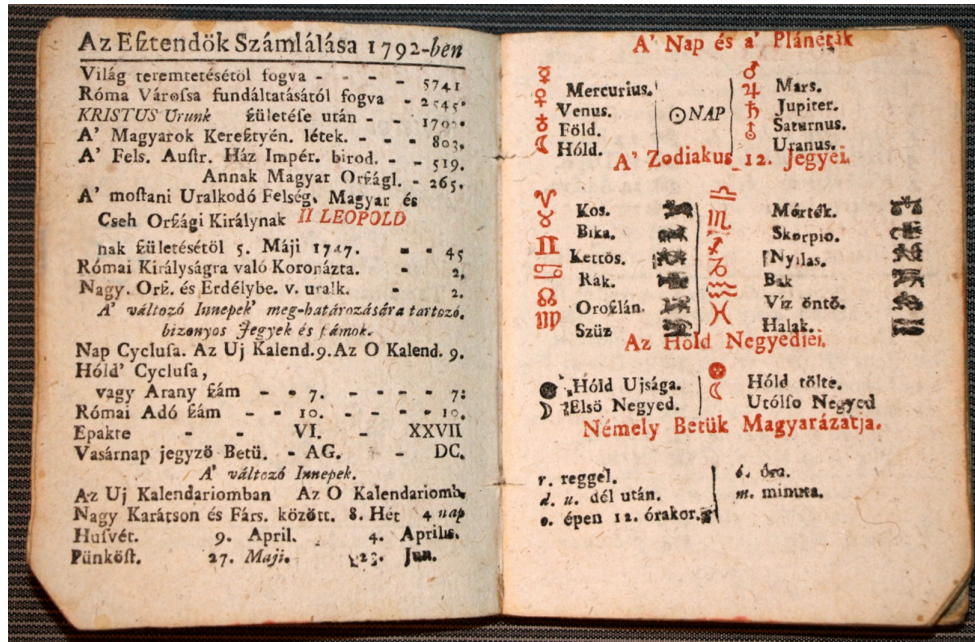 Az Eſztendök Számlálása 1792-ben
Világ teremtetésétöl fogva - - - - 5741
Róma Városſa fundáltatásától fogva - 2545.
KRISTUS Urunk születéſe után - - -
A' Magyarok Kereſztyén. létek. - - - 803.
A' Fels. Auſtr. Ház Impér. birod. - - 519.
Annak Magyar Orſzágl. - 265.
A' moſtani Uralkodó Felség. Magyar és
Cseh Orſzági Királynak II LEOPOLD
nak születésétöl 5. Máji 1747. - - 45
Római Királyságra való Koronázta. - 2.
Nagy. Orſz. és Erdélybe. v. uralk. - 2.
A' változó Innepek' meg-határozására tartozó,
bizonyos Jegyek és számok.
Nap Cycluſa. Az Uj Kalend. 9. Az O Kalend. 9.
Hóld' Cycluſa,
vagy Arany szám - - 7. - - - - 7:
Római Adó szám - - 10. - - - - 10.
Epakte - - VI. - XXVII
Vasárnap jegyzö Betü. - AG. - - DC.
A' változó Innepek.
Az Uj Kalendariomban Az O Kalendariomb.
Nagy Karátson és Fárs. között. 8. Hét 4 nap
Huſvét. 9. April. 4. Aprilis.
Pünköſt. 27. Maji. 23. Jun.
A' Nap és a' Plánéták
☿ Mercurius. ♂ Mars.
♀ Venus. ☉ NAP ♃ Jupiter.
♁ Föld. ♄ Saturnus.
☾ Hóld. Uranus.
A' Zodiakus 12. Jegyei.
♈ Kos. ♎ Mérték.
♉ Bika. ♏ Skorpio.
♊ Kettös. ♐ Nyilas.
♋ Rák. ♑ Bak
♌ Oroſzlán. ♒ Víz öntő.
♍ Szüz ♓ Halak.
Az Hóld Negyedjei.
Hóld Ujsága. Hóld tölte.
☽ Elsö Negyed. ☾ Utólſo Negyed
Némely Betük Magyarázatja.
r. reggel. ó. óra.
d. u. dél után. m. minuta.
e. épen 12. órakor.